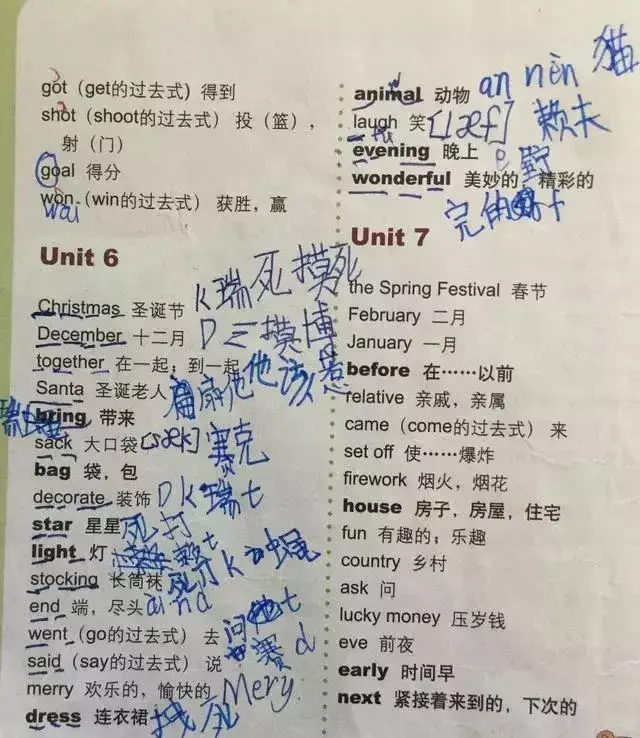 got（get的过去式）得到
shot（shoot的过去式）投（篮），
射（门）
goal 得分
won（win的过去式）获胜，赢
wai
Unit 6
Christmas 圣诞节 k瑞死摸死
December 十二月 D三摸博
together 在一起；到一起
Santa 圣诞老人 扇他
bring 带来
sack 大口袋 [sæk] 赛克
bag 袋，包
decorate 装饰 D k瑞t
star 星星 死打
light 灯 赖t
stocking 长筒袜 死
end 端，尽头 aind
went（go的过去式）去 问 t
said（say的过去式）说 赛d
merry 欢乐的，愉快的 Mery
dress 连衣裙 死
animal 动物 an nèn 猫
laugh 笑 [læf] 赖夫
evening 晚上 e
wonderful 美妙的，精彩的
完
Unit 7
the Spring Festival 春节
February 二月
January 一月
before 在……以前
relative 亲戚，亲属
came（come的过去式）来
set off 使……爆炸
firework 烟火，烟花
house 房子，房屋，住宅
fun 有趣的；乐趣
country 乡村
ask 问
lucky money 压岁钱
eve 前夜
early 时间早
next 紧接着来到的，下次的